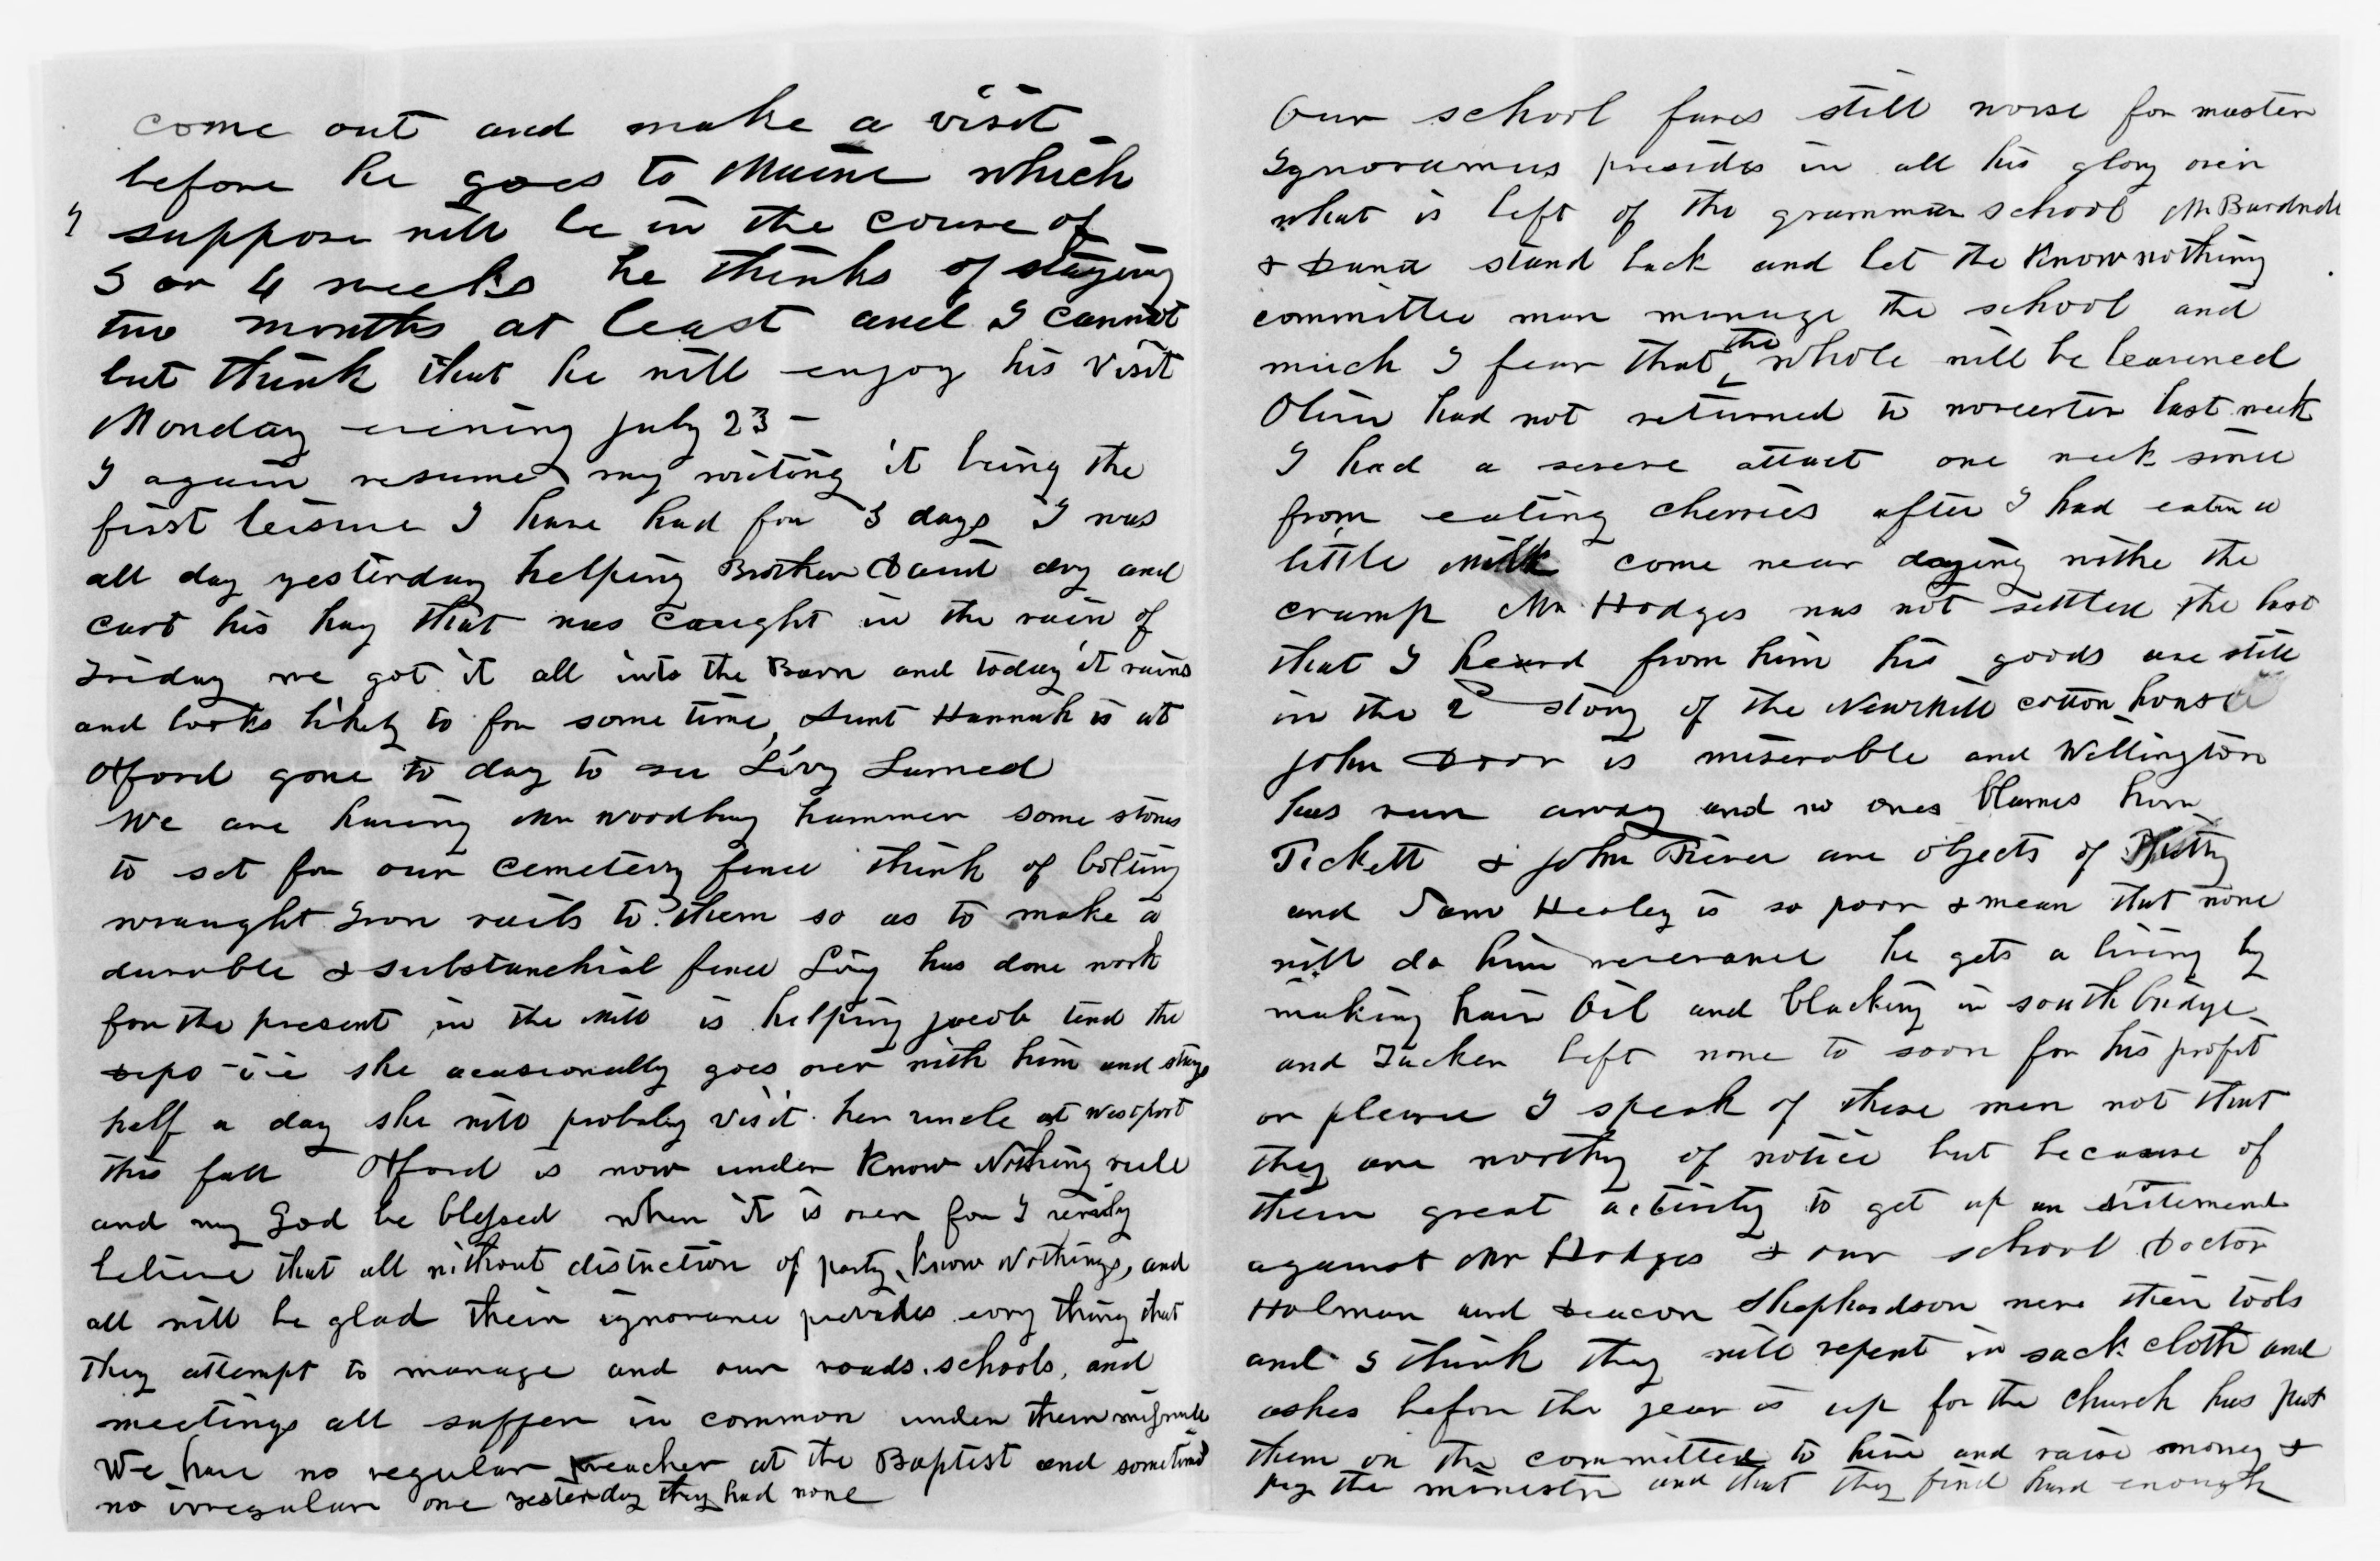 come out and make a visit
before he goes to Maine which
I suppose will be in the course of
3 or 4 weeks he thinks of staying
two months at least and I cannot
but think that he will enjoy his visit
Monday evening July 23 -
I again resume my writing it being the
first leisure I have had for 3 days I was
all day yesterday helping Brother David dry and
cart his hay that was caught in the rain of
Friday we got it all into the Barn and today it rains
and looks likely to for some time, Aunt Hannah is at
Oxford gone to day to see Livy Larned
We are having Mr Woodbury hammer some stones
to set for our cemetery fence think of bolting
wraught Iron rails to them so as to make a
durable & substanchial fence Livy has done work
for the present in the Mill is helping Jacob tend the
depo - i e she acasionally goes over with him and stays
half a day she will probably visit her uncle at Westport
this fall Oxford is now under Know Nothing rule
and my God be blessed when it is over for I verily
believe that all without distinction of party, Know Nothings, and
all will be glad their ignorance pervades evry thing that
they attempt to manage and our roads, schools, and
meetings all suffer in common under their misrule
We have no regular preacher at the Baptist and sometimes
no irregular one yesterday they had none
Our school fares still worse for master
Ignoramus presides in all his glory over
what is left of the grammar school Mr
& Dana stand back and let the Know nothing
committee man manage the school and
much I fear that the whole will be leavened
Olive had not returned to worcester last week
I had a severe attact one week since
from eating cherries after I had eaten a
little Milk come near dying withe the
cramp Mr Hodges was not settled the last
that I heard from him his goods are still
in the 2d story of the New Mill cotton house
John Door is miserable and Wellington
has run away and no ones blames him
Pickett & John are objects of Pitty
and Sam Healey is so poor & mean that none
will do him reverance he gets a living by
making hair Oil and blacking in southbridge
and Tucker left none to soon for his profit
or plesure I speak of these men not that
they are worthy of notice but because of
their great activity to get up an exitement
against Mr Hodges & our school Doctor
Holman and Deacon Shephardson were their tools
and I think they will repent in sack cloth and
ashes before the year is up for the church has put
them on the committee to hire and raise money &
pay the minister and that they find hard enough